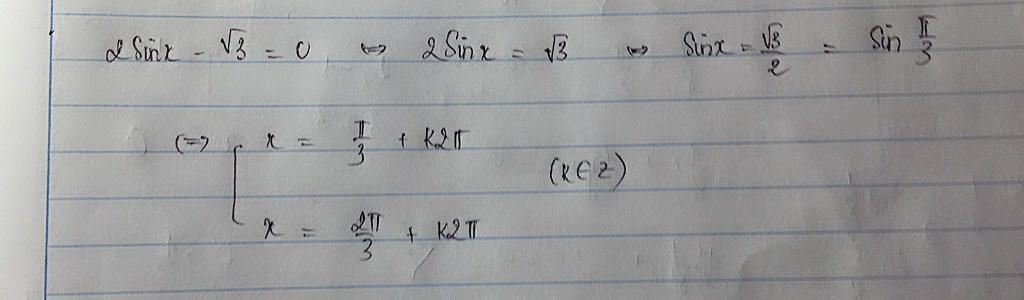 2 Sin x - √3 = 0 ⇔ 2 Sin x = √3 ⇔ Sin x = √3/2 = Sin π/3
⇔ [ x = π/3 + k2π
(k ∈ z)
x = 2π/3 + k2π